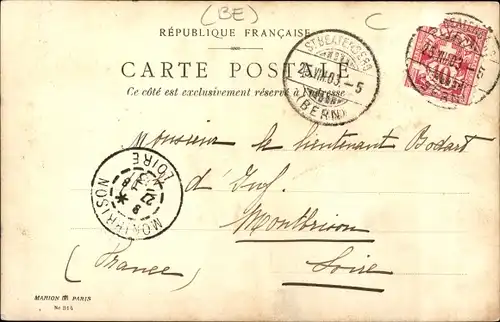 (BE)
C
RÉPUBLIQUE FRANÇAISE
CARTE POSTALE
Ce côté est exclusivement réservé à l'adresse
ST BEATENBERG
25.VIII.03.-5
(BERN)
Monsieur le lieutenant Bodart
d'Inf.
Montbrison
Loire
(France)
MONTBRISON
LOIRE
MARION PARIS
No 314